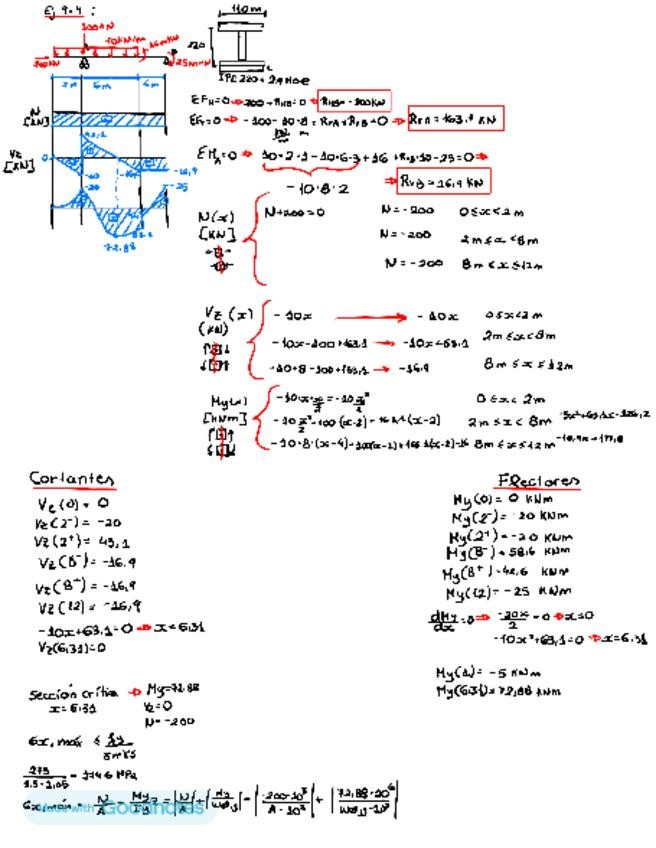 Ej 9.4 :
110 m
100 KN
10 KN/m
16 mKN
25 mKN
220
IPE 220 +
2m 6m 4m
N
[KN]
Vz
[KN]
43,1
0
-20
-16,9
-20
-25
72,88
EFH=0 → 200 + RHB=0 → RHB= -200 KN
EFV=0 → -100 - 10·8 + RVA + RVB = 0 → RVA = 163,1 KN
KN m
EMA=0 → 10·2·1 - 10·6·3 + 16 + RVB·10 - 25 = 0 →
-10·8·2
→ RVB = 16,9 KN
N(x)
[KN]
N+200=0
N = -200 0≤x≤2m
N = -200 2m≤x≤8m
N = -200 8m≤x≤12m
Vz (x)
(KN)
-10x → -10x 0≤x≤2m
-10x-100+163,1 → -10x+63,1 2m≤x≤8m
-10·8-100+163,1 → -16,9 8m≤x≤12m
My(x)
[KNm]
-10·x·x/2 = -10x²/2 0≤x≤2m
-10x²/2 -100·(x-2)+163,1(x-2) 2m≤x≤8m -5x²+63,1x-126,2
-10·8·(x-4)-100(x-2)+163,1(x-2)-16 8m≤x≤12m
Cortantes
Vz(0) = 0
Vz(2⁻) = -20
Vz(2⁺) = 43,1
Vz(8⁻) = -16,9
Vz(8⁺) = -16,9
Vz(12) = -16,9
-10x+63,1=0 → x=6,31
Vz(6,31)=0
Flectores
My(0) = 0 KNm
My(2⁻) = -20 KNm
My(2⁺) = -20 KNm
My(8⁻) = 58,6 KNm
My(8⁺) = 42,6 KNm
My(12) = -25 KNm
dMy/dx=0 → -20x/2 = 0 → x=0
-10x+63,1=0 → x=6,31
My(1) = -5 KNm
My(6,31) = 72,88 KNm
Sección crítica → My=72,88
x=6,31 Vz=0
N=-200
σx,máx ≤ fy/γm·γs
275/1.5·1,05 = 174.6 MPa
σx,máx = N/A - My/Iy z = |N/A| + |My/Wel,y| = |-200·10³/A·10²| + |72,88·10⁶/Wel,y·10³|
Made with Goodnotes